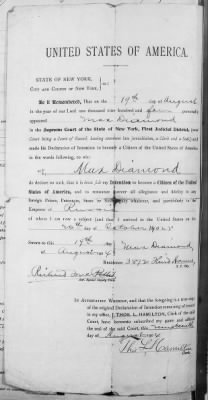 UNITED STATES OF AMERICA.
STATE OF NEW YORK,
CITY AND COUNTY OF NEW YORK,
Be it Remembered, That on the 19th day of August
in the year of our Lord one thousand nine hundred and
appeared Max Diamond
in the Supreme Court of the State of New York, First Judicial District,
Court being a Court of Record, having common law jurisdiction, a Clerk and a Seal) and
made his Declaration of Intention to become a Citizen of the United States of America
in the words following, to wit:
I, Max Diamond
do declare on oath, that it is bona fide my Intention to become a Citizen of the United
States of America, and to renounce forever all allegiance and fidelity to any
foreign Prince, Potentate, State or Sovereignty whatever, and particularly to the
of whom I am now a subject (and that I arrived in the United States on the
day of October
Sworn to this 19th
day of August
Max Diamond
Residence
IN ATTESTATION WHEREOF, and that the foregoing is a true copy
of the original Declaration of Intention remaining of record
in my office, I, THOS. L. HAMILTON, Clerk of the said
Court, have hereunto subscribed my name and affixed
the seal of the said Court, this nineteenth
day of August
Thos L Hamilton
Clerk.